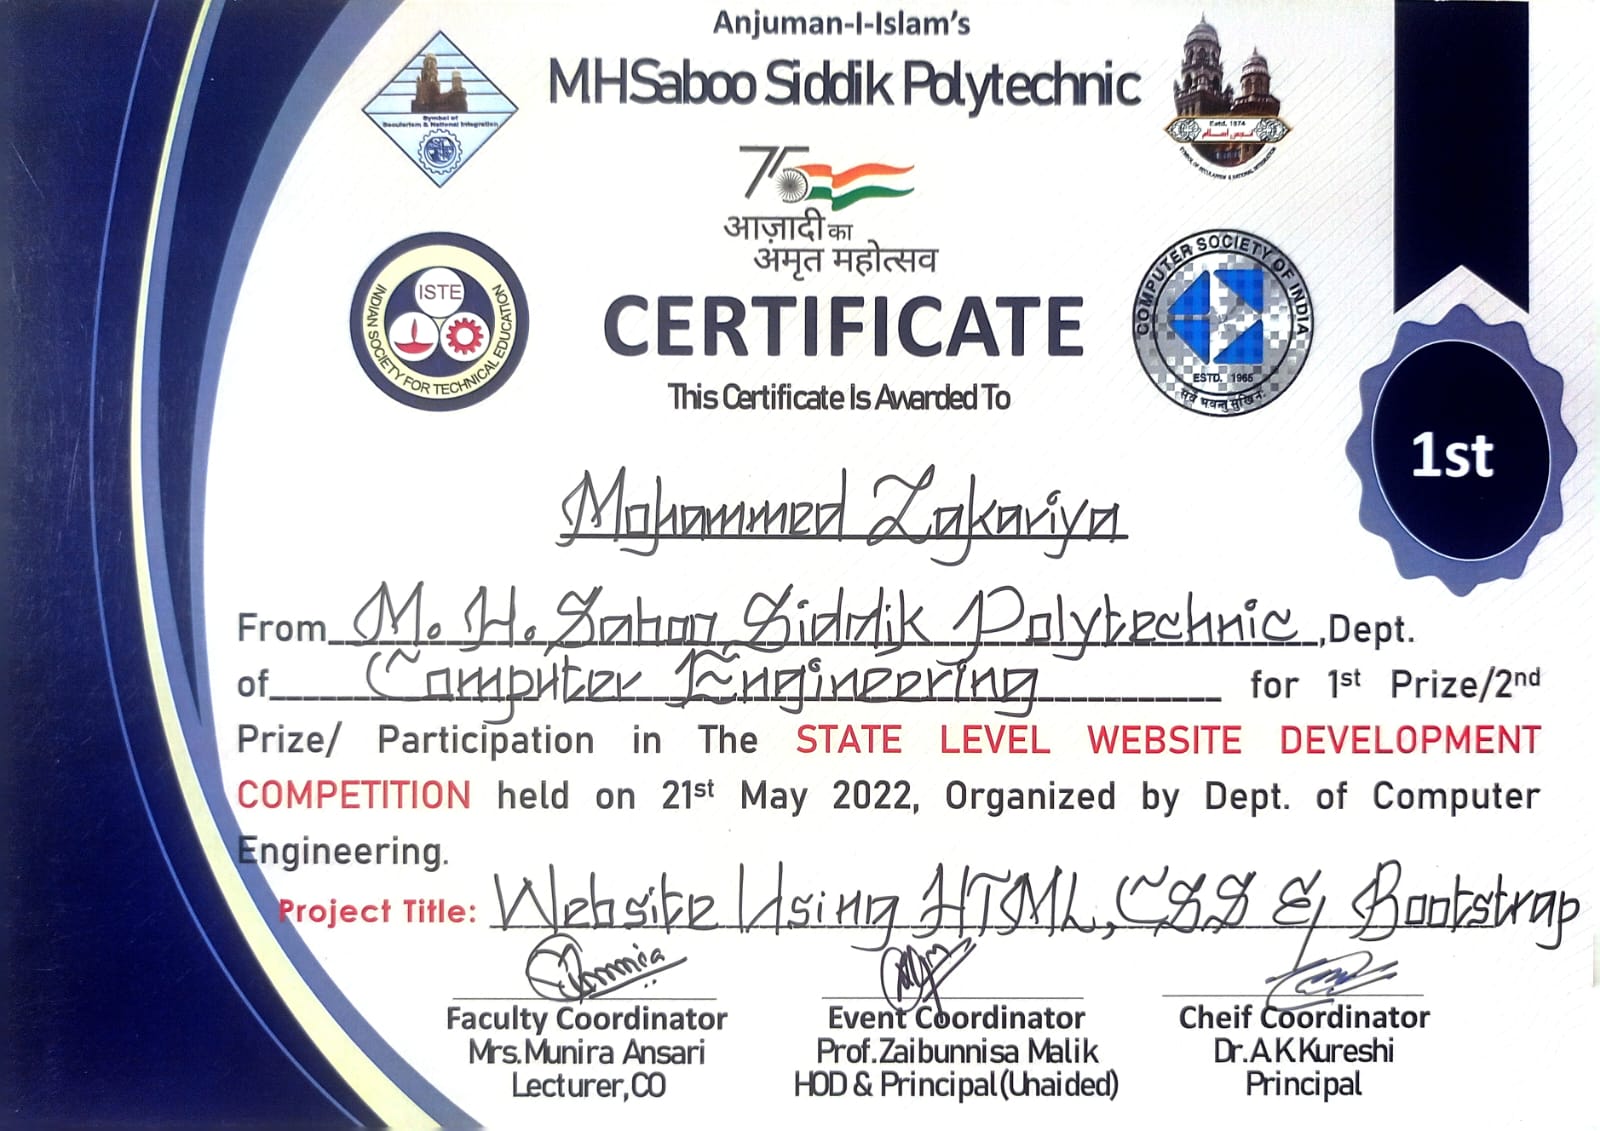 Anjuman-I-Islam's
MHSaboo Siddik Polytechnic
Symbol of
Secularism & National Integration
Estd. 1874
انجمن اسلام
SYMBOL OF SECULARISM & NATIONAL INTEGRATION
75
आज़ादी का
अमृत महोत्सव
ISTE
INDIAN SOCIETY FOR TECHNICAL EDUCATION
COMPUTER SOCIETY OF INDIA
ESTD. 1965
सर्वे भवन्तु सुखिनः
CERTIFICATE
This Certificate Is Awarded To
1st
Mohammed Zakariya
From M. H. Saboo Siddik Polytechnic ,Dept.
of Computer Engineering for 1st Prize/2nd
Prize/ Participation in The STATE LEVEL WEBSITE DEVELOPMENT
COMPETITION held on 21st May 2022, Organized by Dept. of Computer
Engineering.
Project Title: Website Using HTML, CSS & Bootstrap
Faculty Coordinator
Mrs.Munira Ansari
Lecturer,CO
Event Coordinator
Prof.Zaibunnisa Malik
HOD & Principal(Unaided)
Cheif Coordinator
Dr.A K Kureshi
Principal